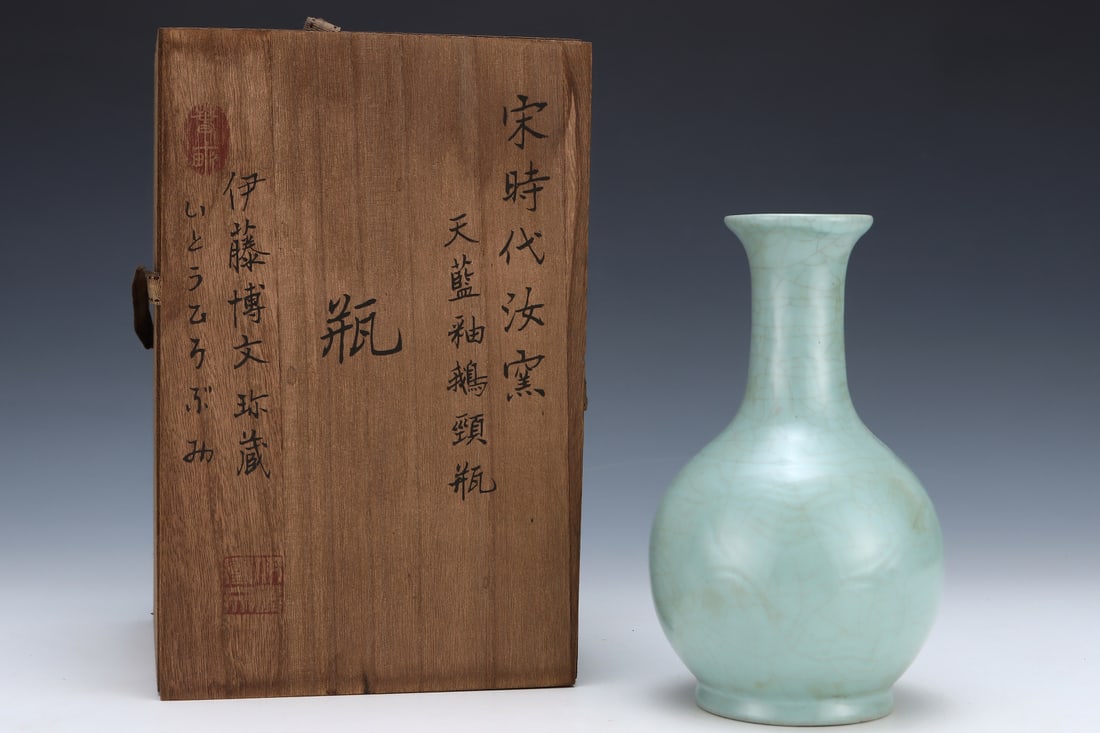 宋時代汝窯
天藍釉鵝頸瓶
瓶
伊藤博文珎藏
いとうひろぶみ